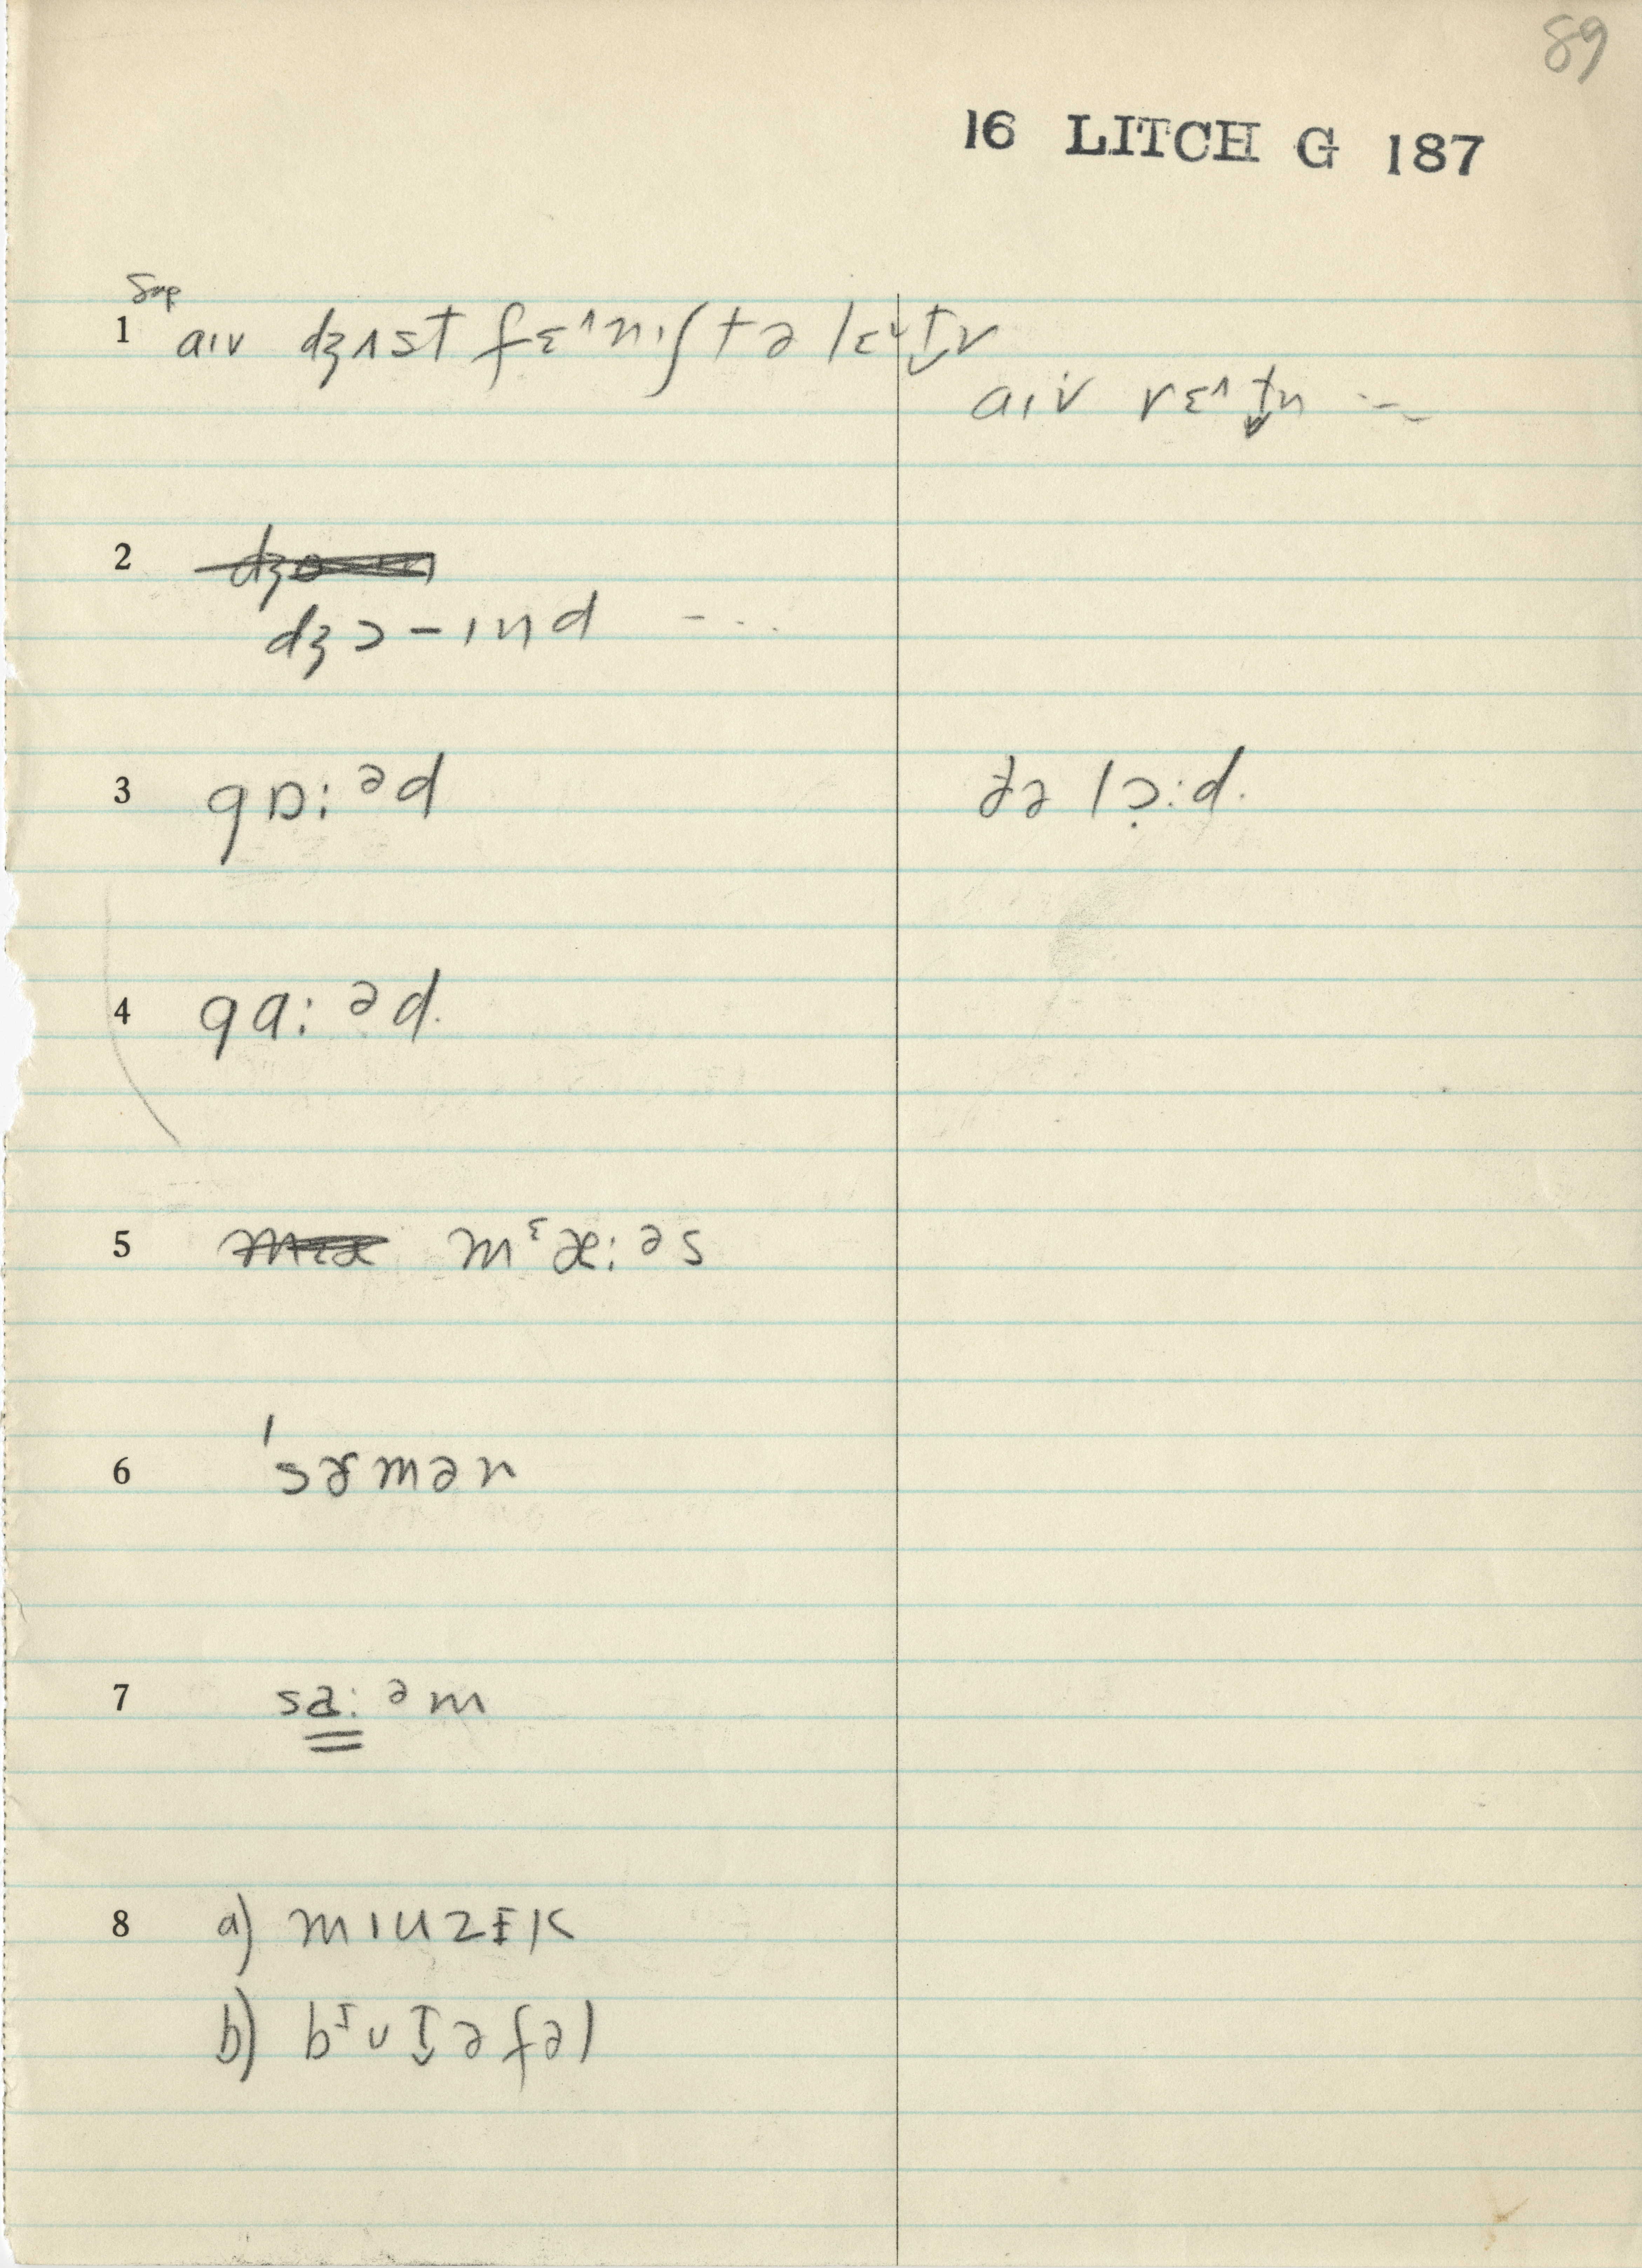 89
16 LITCH G 187
Sup
1 aɪv dʒʌst fɛ^nɪʃt ə lɛ˅t̬ɚ
aɪv rɛ^t̬n ...
2
dʒɔ-ɪnd ...
3 gɒ:ᵊd ðə lɔ̣:d.
4 gɑ:ᵊd.
5 mᵋæ:ᵊs
6 'sɚmən
7 sa:ᵊm
8 a) mɪuzɪk
b) bᶦut̬əfəl